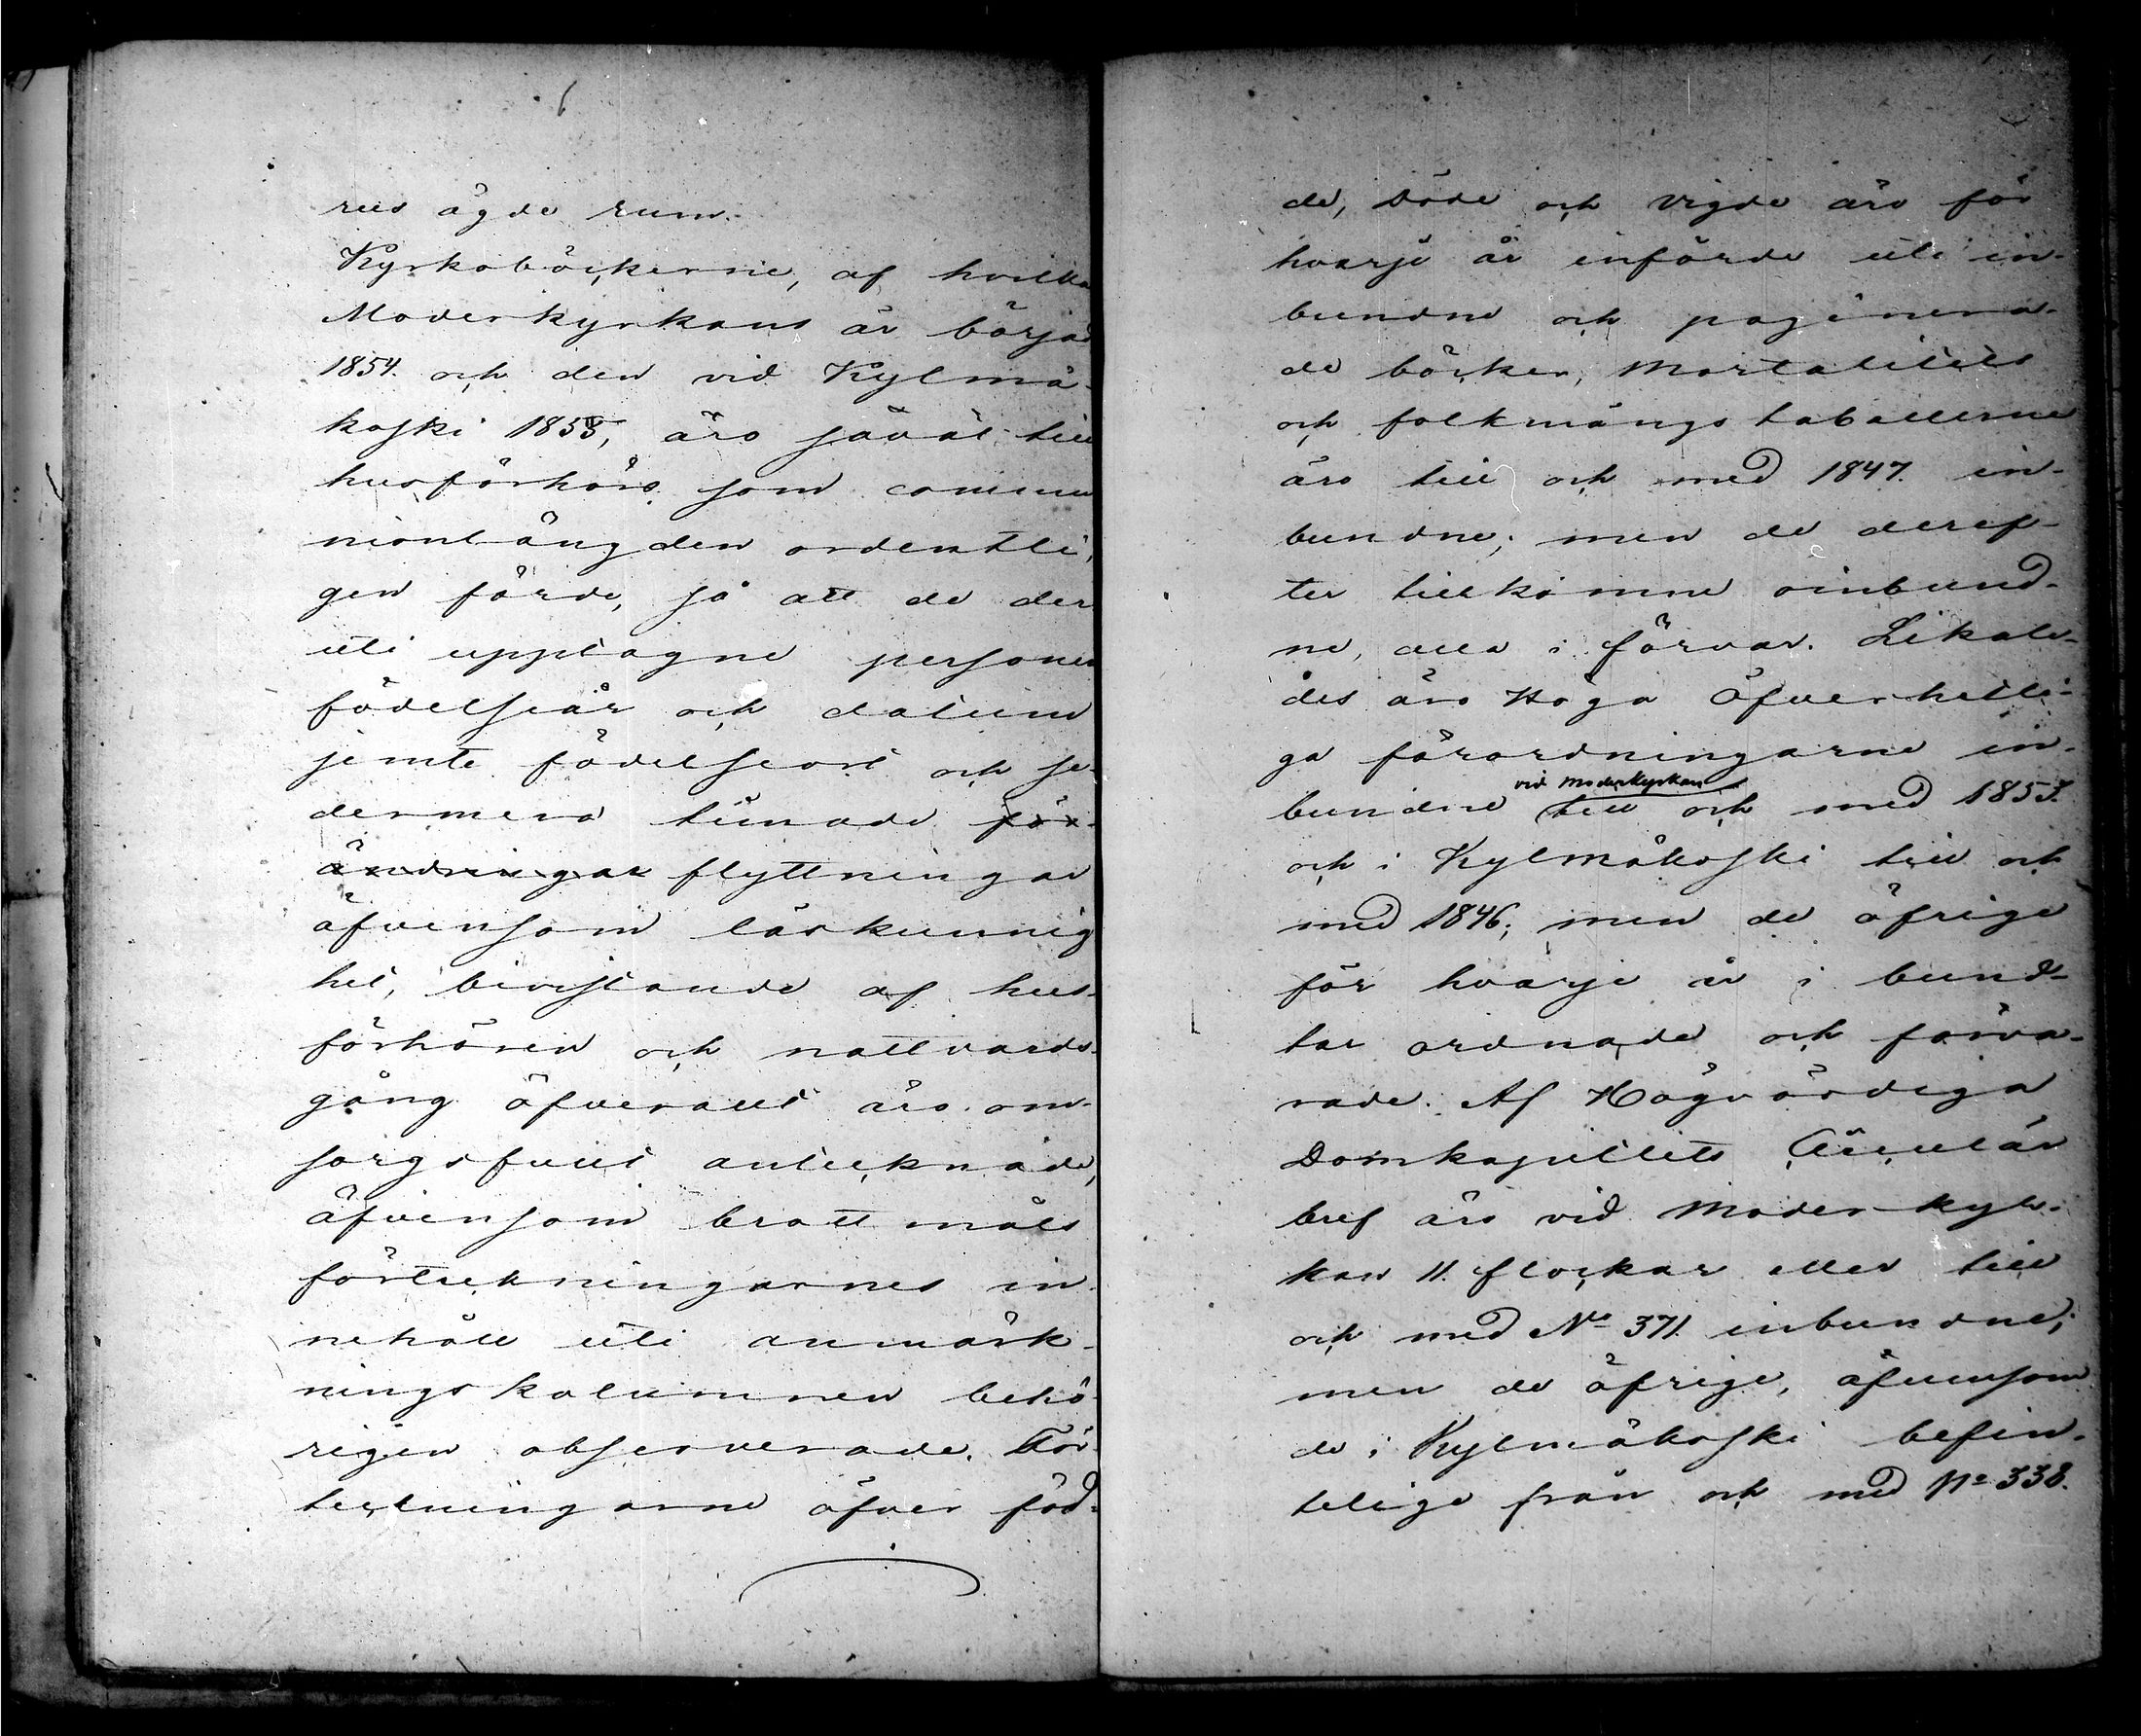 res ägde rum.
Kyrkoböckerne, af hvilka
Moderkyrkans är börjad
1854. och den vid Kylmä-
koski 1855, äro såväl till
husförhörs som commu
nionlängden ordentli,
gen förde, så att de der
uti upptagne personers
födelseår och datum
jemte födelseort och se-
dermera timade för-
ändringar flyttningar
äfvensom läskunnig
het, bevistande af hus-
förhören och nattvards-
gång öfverallt äro om-
sorgsfullt antecknade,
äfvensom brottmåls
förteckningarnes in-
nehåll uti anmärk-
ningskolumnen behö-
rigen observerade. För-
teckningarne öfver föd-
de, döde och vigde äro för
hvarje år införde uti in-
bundne och paginera-
de böcker, Mortalitets
och folkmängs tabellerne
äro till och med 1847. in-
bundne; men de deref-
ter tillkomne oinbund-
ne, alla i förvar. Likale-
des äro Höga Öfverhetli-
ga förordningarne in-
vid Moderkyrkan
bundne till och med 1853.
och i Kylmäkoski till och
med 1846; men de öfrige
för hvarje år i bund-
tar ordnade och förva-
rade. Af Högvördiga
Domkapitlets Circulär
bref äro vid Moderkyr-
kan 11. flockar eller till
och med No 371. inbundne;
men de öfrige, äfvensom
de i Kylmäkoski befin-
telige från och med No 338.